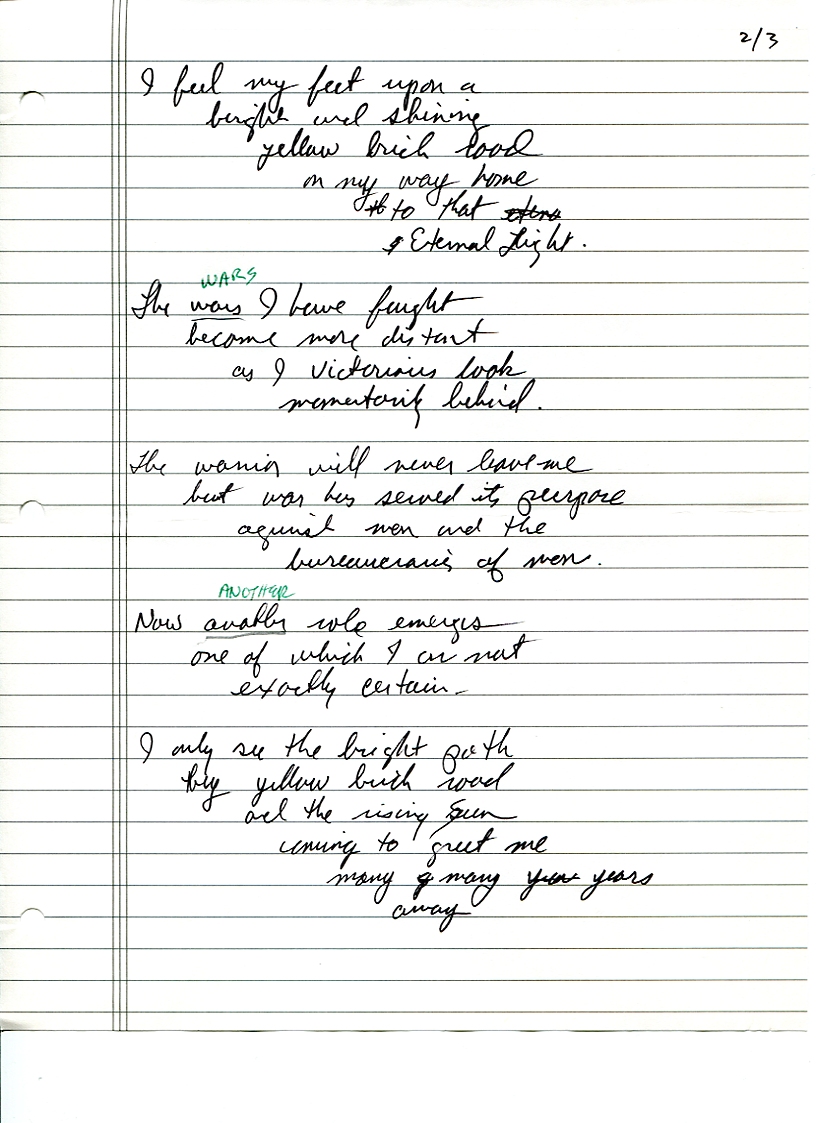 2/3
I feel my feet upon a
bright and shining
yellow brick road
on my way home
to to that etern
Eternal Light.
WARS
The wars I have fought
become more distant
as I victorious look
momentarily behind.
The warrior will never leave me
but war has served its purpose
against men and the
bureaucracies of men.
ANOTHER
Now another role emerges
one of which I am not
exactly certain
I only see the bright path
my yellow brick road
and the rising Sun
coming to greet me
many many years
away